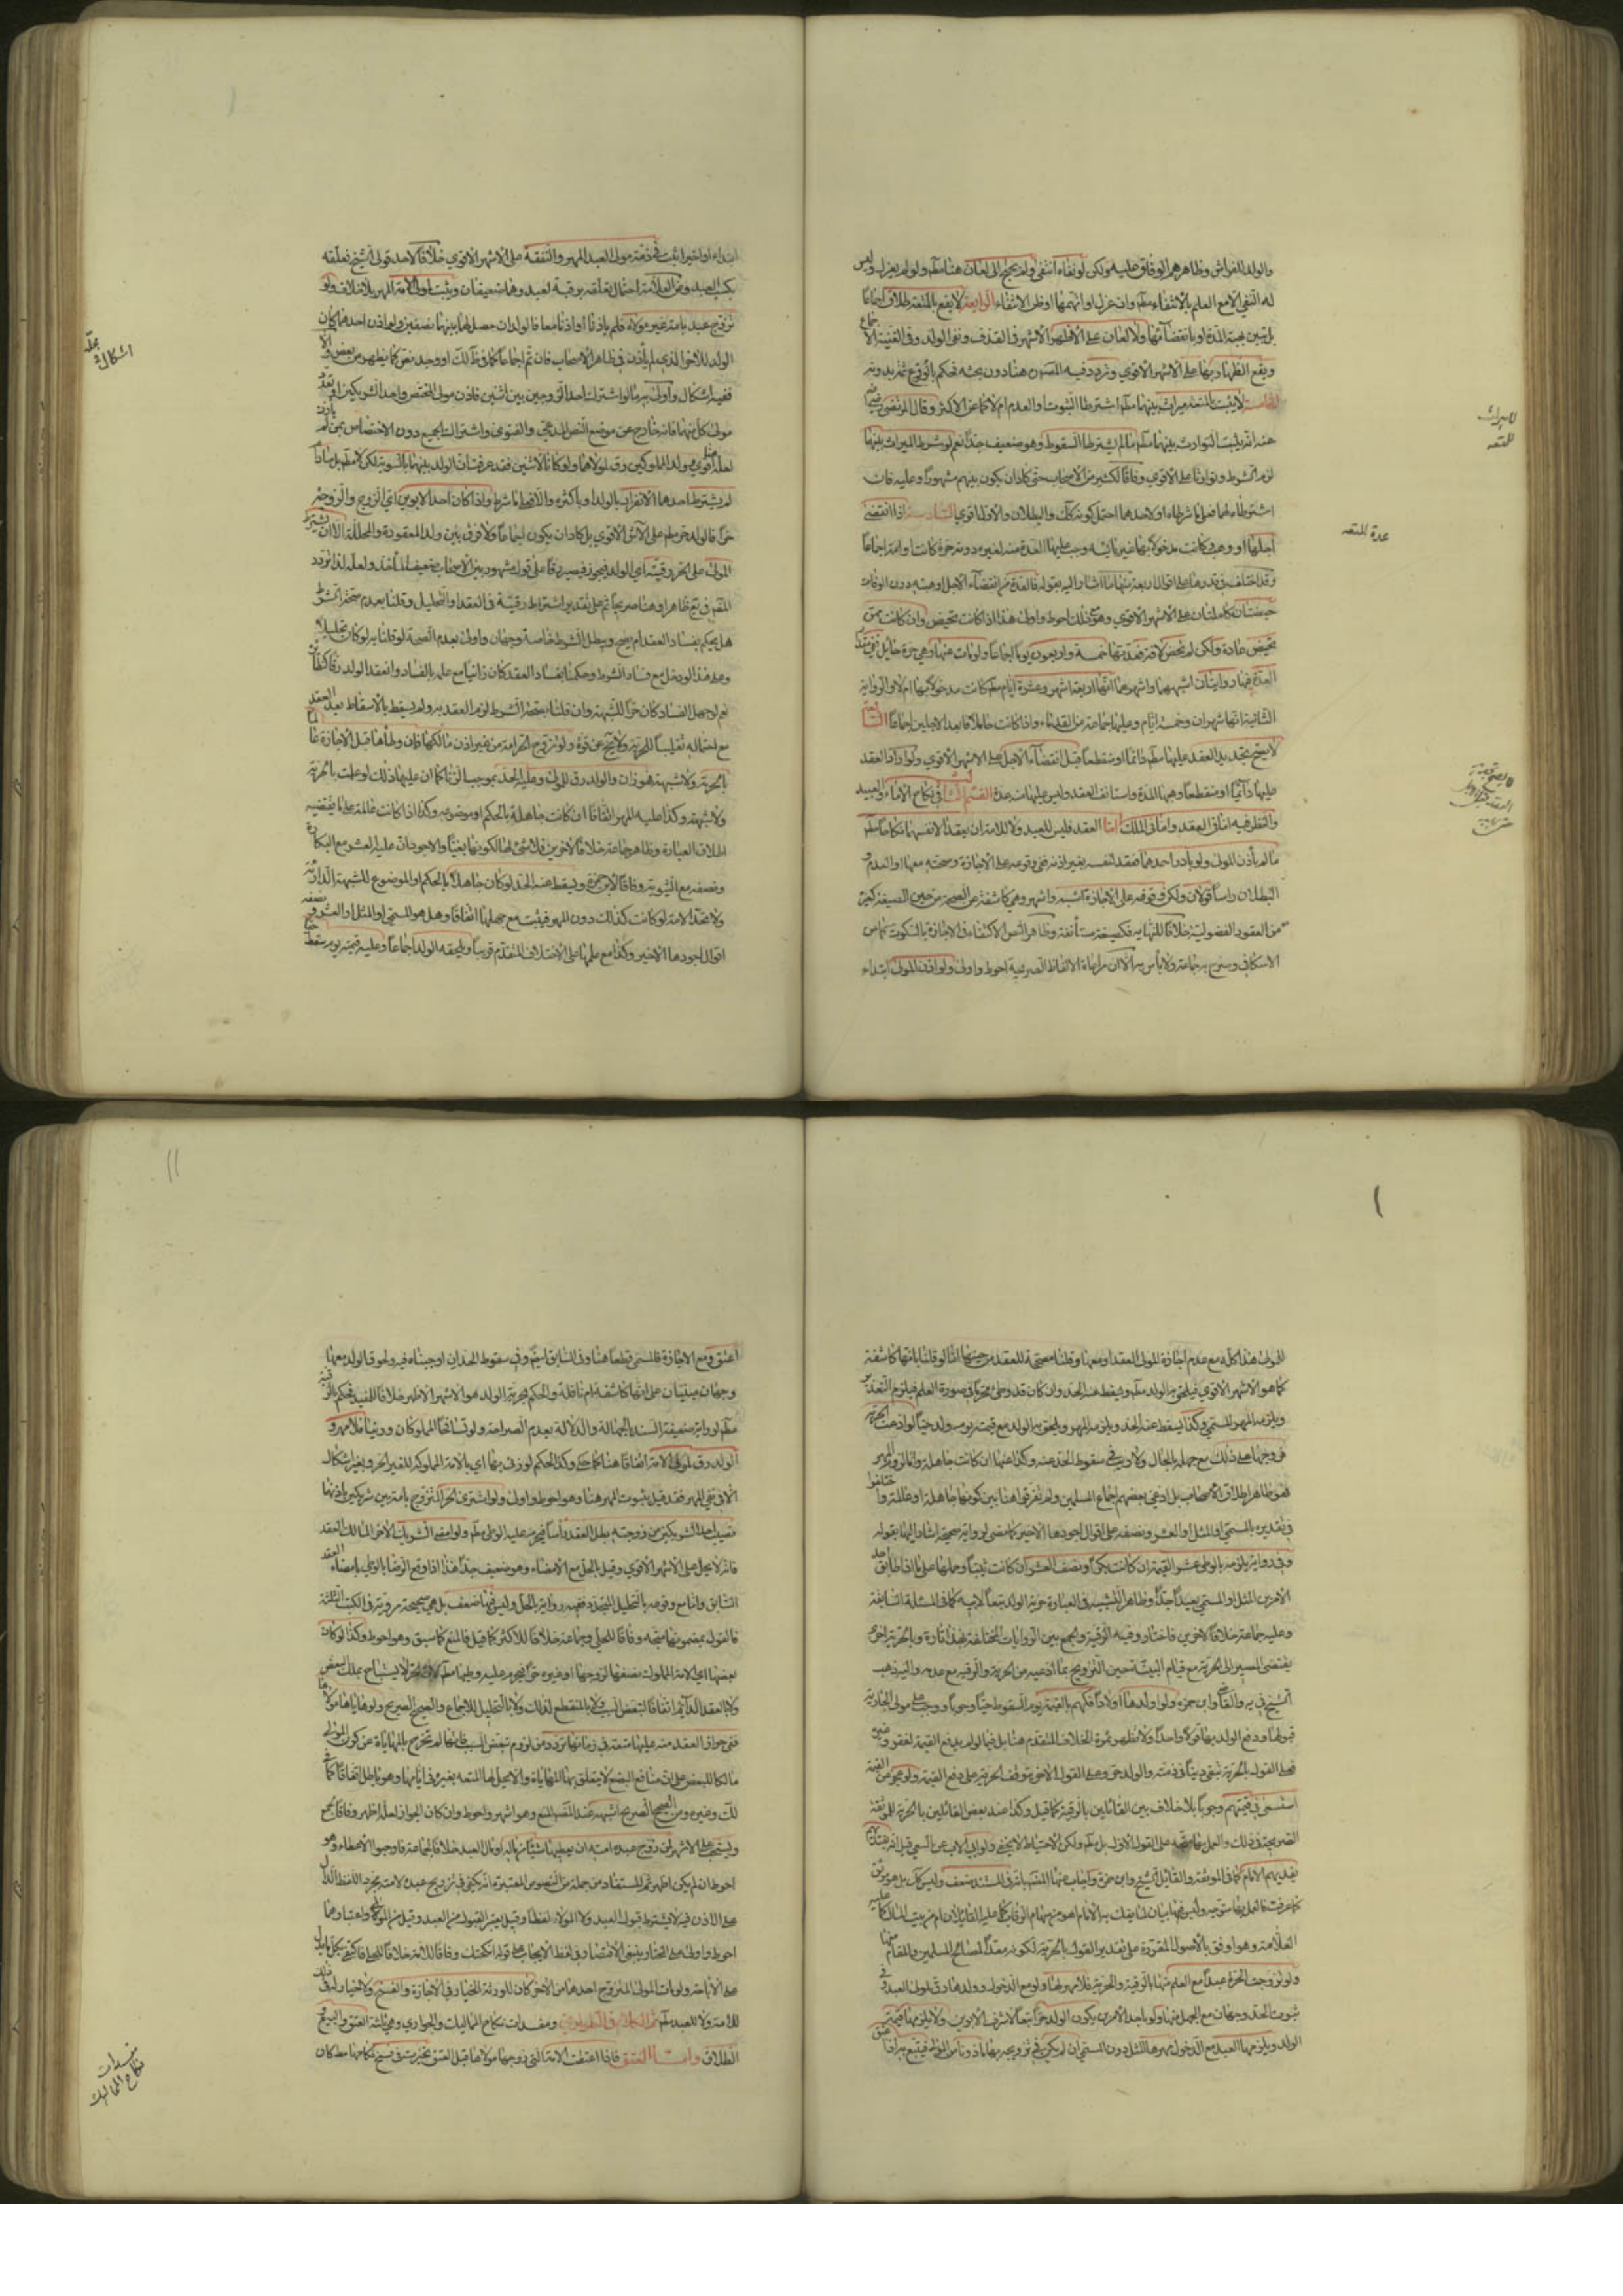 والولد للفراش وظاهرهم الوفاق عليه ولكن لو نفاه انتفى ولم يحتج الى لعان هنا مطلقا ولو لم يعزل وليس
له النفي الا مع العلم بالانتفاء مطلقا وان عزل او اتهمها او ظن الانتفاء الرابعة لا يقع بالمتعة طلاق اجماعا
بل تبين بهبة المدة او بانقضائها ولا لعان على الاظهر الاشهر في القذف ونفي الولد وفي الغنية الاجماع
ويقع الظهار بها على الاشهر الاقوى وتردد فيه المصنف هنا دون بحثه فحكم بالوقوع ثمة بدونه
الخامسة لا يثبت بالمتعة ميراث بينهما مطلقا اشترطا الثبوت او العدم ام لا كما عن الاكثر وقال المرتضى رضي
عنه انه يثبت التوارث بينهما مطلقا ما لم يشترطا السقوط وهو ضعيف جدا نعم لو شرط الميراث بينهما
لزم الشرط وتوارثا على الاقوى وفاقا لكثير من الاصحاب حتى كاد ان يكون بينهم مشهورا وعليه فان
اشترطاه لهما فعلى ما شرطاه او لاحدهما احتمل كونه كذلك والبطلان والاول اقوى السادسة اذا انقضى
اجلها او وهب وكانت مدخولا بها غير يائسة وجب عليها العدة منه لغيره دونه حرة كانت او امة اجماعا
وقد اختلف في قدرها على اقوال اربعة منها ما اشار اليه بقوله فالعدة من انقضاء الاجل او هبته دون الوفات
حيضتان كاملتان على الاشهر الاقوى وهو مع ذلك احوط واولى هذا اذا كانت تحيض وان كانت ممن
تحيض عادة ولكن لم تحض لآفة فعدتها خمسة واربعون يوما اجماعا ولو مات عنها وهي حرة حايل ففي قدر
العدة فيها روايتان اشبههما واشهرهما انها اربعة اشهر وعشرة ايام مطلقا كانت مدخولا بها ام لا والرواية
الثانية انها شهران وخمسة ايام وعليها جماعة من القدماء واذا كانت حاملا فابعد الاجلين اجماعا السابعة
لا يصح تجديد العقد عليها مطلقا دائما او منقطعا قبل انقضاء الاجل على الاشهر الاقوى ولو اراد العقد
عليها دائما او منقطعا وهبها المدة واستانف العقد وليس عليها منه عدة القسم الثالث في نكاح الاماء والعبيد
والنظر فيه اما في العقد واما في الملك اما العقد فليس للعبد ولا للامة ان يعقد لانفسهما نكاحا مطلقا
ما لم ياذن المولى ولو بادر احدهما فعقد لنفسه بغير اذنه ففي وقوفه على الاجازة وصحته معها او العدم و
البطلان راسا قولان ولكن وقوفه على الاجازة اشبه واشهر وهي كاشفة عن الصحة من حين الصيغة كغيره
من العقود الفضولية خلافا للنهاية فكصيغة مستانفة وظاهر النص الاكتفاء في الاجازة بالسكوت كما عن
الاسكافي وصرح به جماعة ولا بأس به الا ان مراعاة الالفاظ الصريحة احوط واولى ولو اذن المولى ابتداء
لا ميراث
للمتعه
عدة المتعه
ابتداء او اخيرا ثبت في ذمة مولى العبد المهر والنفقة على الاشهر الاقوى خلافا لاحد قولي الشيخ فعلقه
بكسب العبد وعن العلامة احتمال تعلقه برقبة العبد وهما ضعيفان ويثبت لمولى الامة المهر بلا خلاف ولو
تزوج عبد بامة غير مولاه فلم ياذنا او اذنا معا فالولدان حصل لهما بينهما نصفين ولو اذن احدهما كان
الولد للاخر الذي لم ياذن في ظاهر الاصحاب فان تم اجماعا كما في ظ او وجد نص كما يظهر من بعض والا
ففيه اشكال
مولى كل منهما فانه خارج عن موضع النص المدعى والفتوى واشتراك الجميع دون الاختصاص بمن لم ياذن
لعله اقوى وولد المملوكين رق لمولاهما ولو كانا لاثنين فقد عرفت ان الولد بينهما بالسوية لكن لا مطلقا بل ما
لم يشترط احدهما الانفراد بالولد او باكثره والا فعلى ما شرط واذا كان احد الابوين اي الزوج والزوجة
حرا فالولد حر مطلقا على الاشهر الاقوى بل كاد ان يكون اجماعا ولا فرق بين ولد المعقودة والمحللة الا ان يشترط
المولى على الحر رقية اي الولد فيجوز فيصير رقا على قول مشهور بين الاصحاب ضعيف الماخذ ولعله لذا تردد
المصنف في يع ظاهرا وهنا صريحا ثم على تقدير اشتراط رقية في العقد او التحليل وقلنا بعدم صحة الشرط
هل يحكم بفساد العقد ام يصح ويبطل الشرط خاصة وجهان واولى بعدم الصحة لو قلنا به لو كان تحليلا
وعلى هذا لو دخل مع فساد الشرط وحكمنا بفساد العقد كان زانيا مع علمه بالفساد وانعقد الولد رقا كنظايره
نعم لو جهل الفساد كان حرا للشبهة وان قلنا بصحة الشرط لزم العقد به ولم يسقط بالاسقاط بعد العقد
مع احتماله تغليبا للحرية ولا يخ عن قوة ولو تزوج الحر امة من غير اذن مالكها فان وطأها قبل الاجازة عالما
بالحرمة ولا شبهة فهو زان والولد رق للمولى وعليه الحد بموجب الزنا كما ان عليها ذلك لو علمت بالحرمة
ولا شبهة وكذا عليه المهر اتفاقا ان كانت جاهلة بالحكم او موضوعه وكذا اذا كانت عالمة على ما يقتضيه
اطلاق العبارة وظاهر جماعة خلافا لاخرين فلا شئ لها لكونها بغيا والاجود ان عليه العشر مع البكارة
ونصفه مع الثيبوبة وفاقا لابن حمزة ويسقط عنه الحد لو كان جاهلا بالحكم او الموضوع للشبهة الدارئة
ولا تحد الامة لو كانت كذلك دون المهر فيثبت مع جهلها اتفاقا وهل هو المسمى او المثل او العشر و نصفه
اقوال اجودها الاخير وكذا مع علمها على الاختلاف المتقدم قريبا ويلحقه الولد اجماعا وعليه قيمته يوم سقط حيا
محله
اشكال
للمولى هذا كله مع عدم اجازة المولى العقد او معها وقلنا مصححة للعقد من حينها اما لو قلنا بانها كاشفة
كما هو الاشهر الاقوى فيلحق به الولد مطلقا ويسقط عنه الحد وان كان قد وطئ محرما في صورة العلم فيلزم التعزير
ويلزمه المهر المسمى وكذا يسقط عنه الحد ويلزمه المهر ويلحق به الولد مع قيمته يوم ولد حيا لو ادعت الحرية
فزوجها على ذلك مع جهله بالحال ولا ريب في سقوط الحد عنه وكذا عنها ان كانت جاهلة واما لزوم المهر
فهو ظاهر اطلاق الاصحاب بل ادعى بعضهم اجماع المسلمين ولم يفرقوا هنا بين كونها جاهلة او عالمة واختلفوا
في تقديره بالمسمى او المثل او العشر ونصفه على اقوال اجودها الاخير كما مضى لرواية صحيحة اشار اليها بقوله
وفي رواية يلزمه بالوطئ عشر القيمة ان كانت بكرا ونصف العشر ان كانت ثيبا وحملها على ما اذا طابق احد
الامرين المثل او المسمى بعيد جدا وظاهر التشبيه في العبارة حرية الولد تبعا لابيه كما في المسئلة السابقة
وعليه جماعة خلافا لاخرين فاختاروا فيه الرقية والجمع بين الروايات المختلفة بهذا تارة وبالحرية اخرى
يقتضي المصير الى الحرية مع قيام البينة حين التزويج بما ادعته من الحرية والرقية مع عدمه واليه ذهب
الشيخ في يه والقاضي وابن حمزه ولو اولدها اولادا فكهم بالقيمة يوم السقوط حيا وجوبا ووجب على مولى الجارية
قبولها ودفع الولد بها قولا واحدا ولا تظهر ثمرة الخلاف المتقدم هنا بل فيما لو لم يدفع القيمة لفقر وغيره
فعلى القول بالحرية تبقى دينا في ذمته والولد حر وعلى القول الاخر تتوقف الحرية على دفع القيمة ولو عجز عن القيمة
استسعى في قيمتهم وجوبا بلا خلاف بين القائلين بالرقية كما قيل وكذا عند بعض القائلين بالحرية للموثقة
الصريحة في ذلك ولو ابى الاب عن السعي قيل انه
يفديهم الامام كما في الموثقة والقائل الشيخ وابن حمزة
العلامة وهو اوفق بالاصول المقررة على تقدير القول بالحرية لكونه معدا لمصالح المسلمين والمقام منها
ولو تزوجت الحرة عبدا مع العلم منها بالرقية والحرمة فلا مهر لها ولو مع الدخول وولدها رق لمولى العبد وفي
ثبوت الحد وجهان مع الجهل منها ولو باحد الامرين يكون الولد حرا تبعا لاشرف الابوين ولا يلزمها قيمة
الولد ويلزم العبد مع الدخول مهرها المثل دون المسمى ان لم يكن في تزويجه بها ماذونا من المولى فيتبع به اذا عتق
اعتق ومع الاجازة فالمسمى قطعا هنا وفي السابق ايضا وفي سقوط الحد ان اوجبناه فيه ولحوق الولد معها
وجهان مبنيان على انها كاشفة ام ناقلة والحكم بحرية الولد هو الاشهر الاظهر خلافا للمفيد فحكم بالرقية
مطلقا لرواية ضعيفة السند بالجهالة والدلالة بعدم الصراحة ولو تسافحا المملوكان وزنيا فلا مهر و
الولد رق لمولى الامة اتفاقا هنا كما حكي وكذا الحكم لو زنى بها اي بالامة المملوكة للغير الحر وبغير اشكال
الا في نفي المهر فقد قيل بثبوت المهر هنا وهو احوط واولى ولو اشترى الحر المتزوج بامة بين شريكين باذنهما
نصيب احد الشريكين من زوجته بطل العقد راسا فيحرم عليه الوطي مطلقا ولو امضى الشريك الاخر المالك العقد
فانه لا يحل على الاشهر الاقوى وقيل يحل مع الامضاء وهو ضعيف جدا هذا اذا وقع الرضا بالوطي بامضاء العقد
السابق واما مع وقوعه بالتحليل المتجدد ففيه رواية بالحل وليس فيها ضعف بل هي صحيحة مروية في الكتب الثلثة
فالقول بمضمونها متجه وفاقا للحلي وجماعة خلافا للاكثر كما قيل فالمنع كما سبق وهو احوط وكذا لو كان
بعضها اي الامة المملوك نصفها لزوجها او غيره حرا فيحرم عليه وطيها مطلقا لا يستباح بملك البعض
ولا بالعقد الدائم اتفاقا لتبعض السبب ولا بالمنقطع لذلك ولا بالتحليل للاجماع والصحيح الصريح ولو هاياها مولاها
ففي جواز العقد منه عليها متعة في زمانها تردد من لزوم تبعض السبب فانها لم تخرج بالمهاياة عن كون المولى
مالكا للبعض على ان منافع البضع لا يتعلق بها المهاياة والا لحل لها المتعة بغيره في ايامها وهو باطل اتفاقا كما في
لك وغيره ومن الصحيح الصريح اشبهه عند المصنف المنع وهو اشهر واحوط وان كان الجواز لعله اظهر وفاقا لجمع
ويستحب على الاشهر لمن زوج عبده امته ان يعطيها شيئا من ماله او مال العبد خلافا لجماعة فاوجبوا الاعطاء وهو
احوط ان لم يكن اظهر ثم المستفاد من جملة من النصوص المعتبرة انه يكفي في تزويج عبده لامته مجرد اللفظ الدال
على الاذن فيه لا يشترط قبول العبد ولا المولى لفظا وقيل يعتبر القبول من العبد وقيل من المولى واعتبارهما
احوط واولى على المختار وينبغي الاقتصار في لفظ الايجاب على قوله انكحتك وفاقا للامة خلافا للحلي فاكتفى بكل ما يدل
على الاباحة ولو مات المولى المتزوج احدهما من الاخر كان للورثة الخيار في الاجازة والفسخ ولا خيار في ذلك
للامة ولا للعبد مطلقا ثم الكلام في الطواري ومفسدات نكاح المماليك والجواري وهي ثلثة العتق والبيع و
الطلاق واما العتق فاذا اعتقت الامة التي زوجها مولاها قبل العتق تخيرت في فسخ نكاحها مطلقا كان
مفسدات
نكاح المماليك